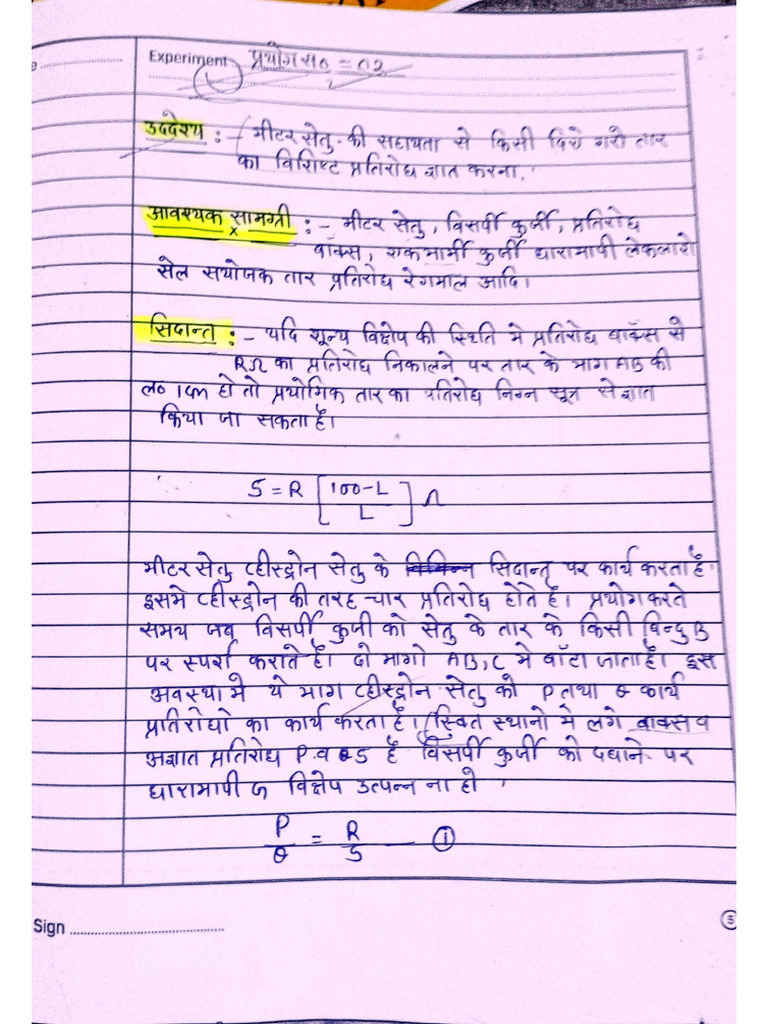 Experiment प्रयोग स० = 02
उददेश्य : - मीटर सेतु की सहायता से किसी दिये गये तार
का विशिष्ट प्रतिरोध ज्ञात करना,
आवश्यक सामग्री : - मीटर सेतु, विसर्पी कुंजी, प्रतिरोध
बॉक्स, एकमार्गी कुंजी धारामापी लेकलांशे
सेल सयोजक तार प्रतिरोध रेगमाल आदि।
सिदान्त : - यदि शून्य विक्षेप की स्थिति मे प्रतिरोध बॉक्स से
RΩ का प्रतिरोध निकालने पर तार के भाग AB की
ल० 1cm हो तो प्रयोगिक तार का प्रतिरोध निम्न सूत्र से ज्ञात
किया जा सकता है।
S = R [100-L / L] Ω
मीटर सेतु व्हीस्ट्रोन सेतु के सिदान्त पर कार्य करता है
इसमे व्हीस्ट्रोन की तरह चार प्रतिरोध होते है। प्रयोग करते
समय जब विसर्पी कुंजी को सेतु के तार के किसी विन्दु B
पर स्पर्श कराते है। दो भागो AB, C मे बॉटा जाता है। इस
अवस्था मे ये भाग व्हीस्ट्रोन सेतु को P तथा Q कार्य
प्रतिरोधो का कार्य करता है। स्थानो मे लगे वाक्स व
अज्ञात प्रतिरोध P व S है विसर्पी कुंजी को दबाने पर
धारामापी विक्षेप उत्पन्न ना हो
P/Q = R/S — ①
Sign
5